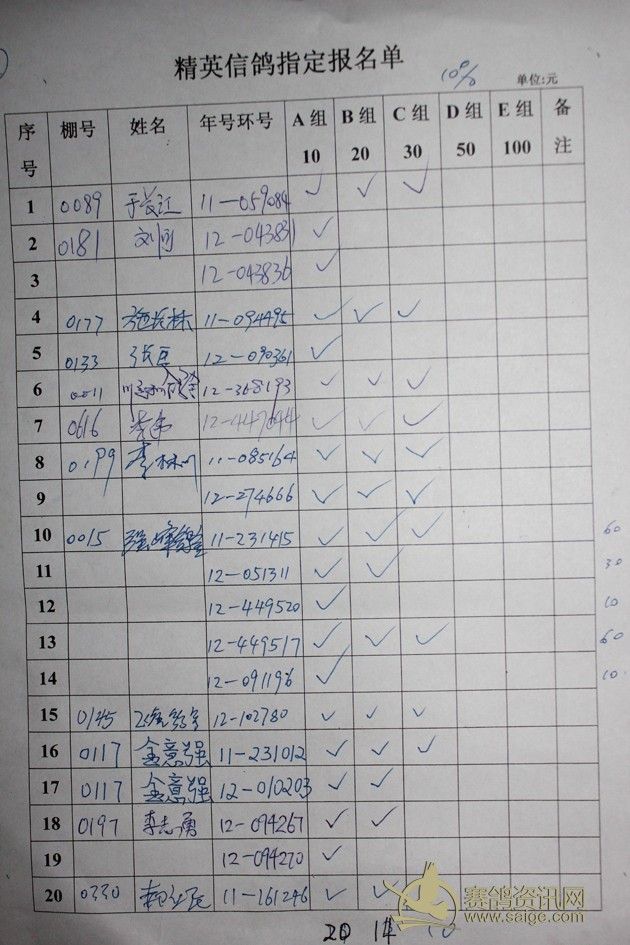 精英信鸽指定报名单
10% 单位:元
序号 棚号 姓名 年号环号 A组10 B组20 C组30 D组50 E组100 备注
1 0089 于长江 11-059084 ✓ ✓ ✓
2 0181 刘 12-043831 ✓
3 12-043836 ✓
4 0177 施长林 11-094495 ✓ ✓ ✓
5 0133 张 12-090361 ✓
6 0011 12-368193 ✓ ✓ ✓
7 0616 12-447644 ✓ ✓ ✓
8 0199 李林 11-085164 ✓ ✓ ✓
9 12-274666 ✓ ✓ ✓
10 0015 11-231415 ✓ ✓ ✓ 60
11 12-051311 ✓ ✓ 30
12 12-449520 ✓ 10
13 12-449517 ✓ ✓ ✓ 60
14 12-091196 ✓ 10
15 0145 12-102780 ✓ ✓ ✓
16 0117 金意强 11-231012 ✓ ✓ ✓
17 0117 金意强 12-010203 ✓ ✓
18 0197 李志勇 12-094267 ✓ ✓
19 12-094270 ✓
20 0330 11-161246 ✓ ✓
赛鸽资讯网
www.saige.com
20 14 10